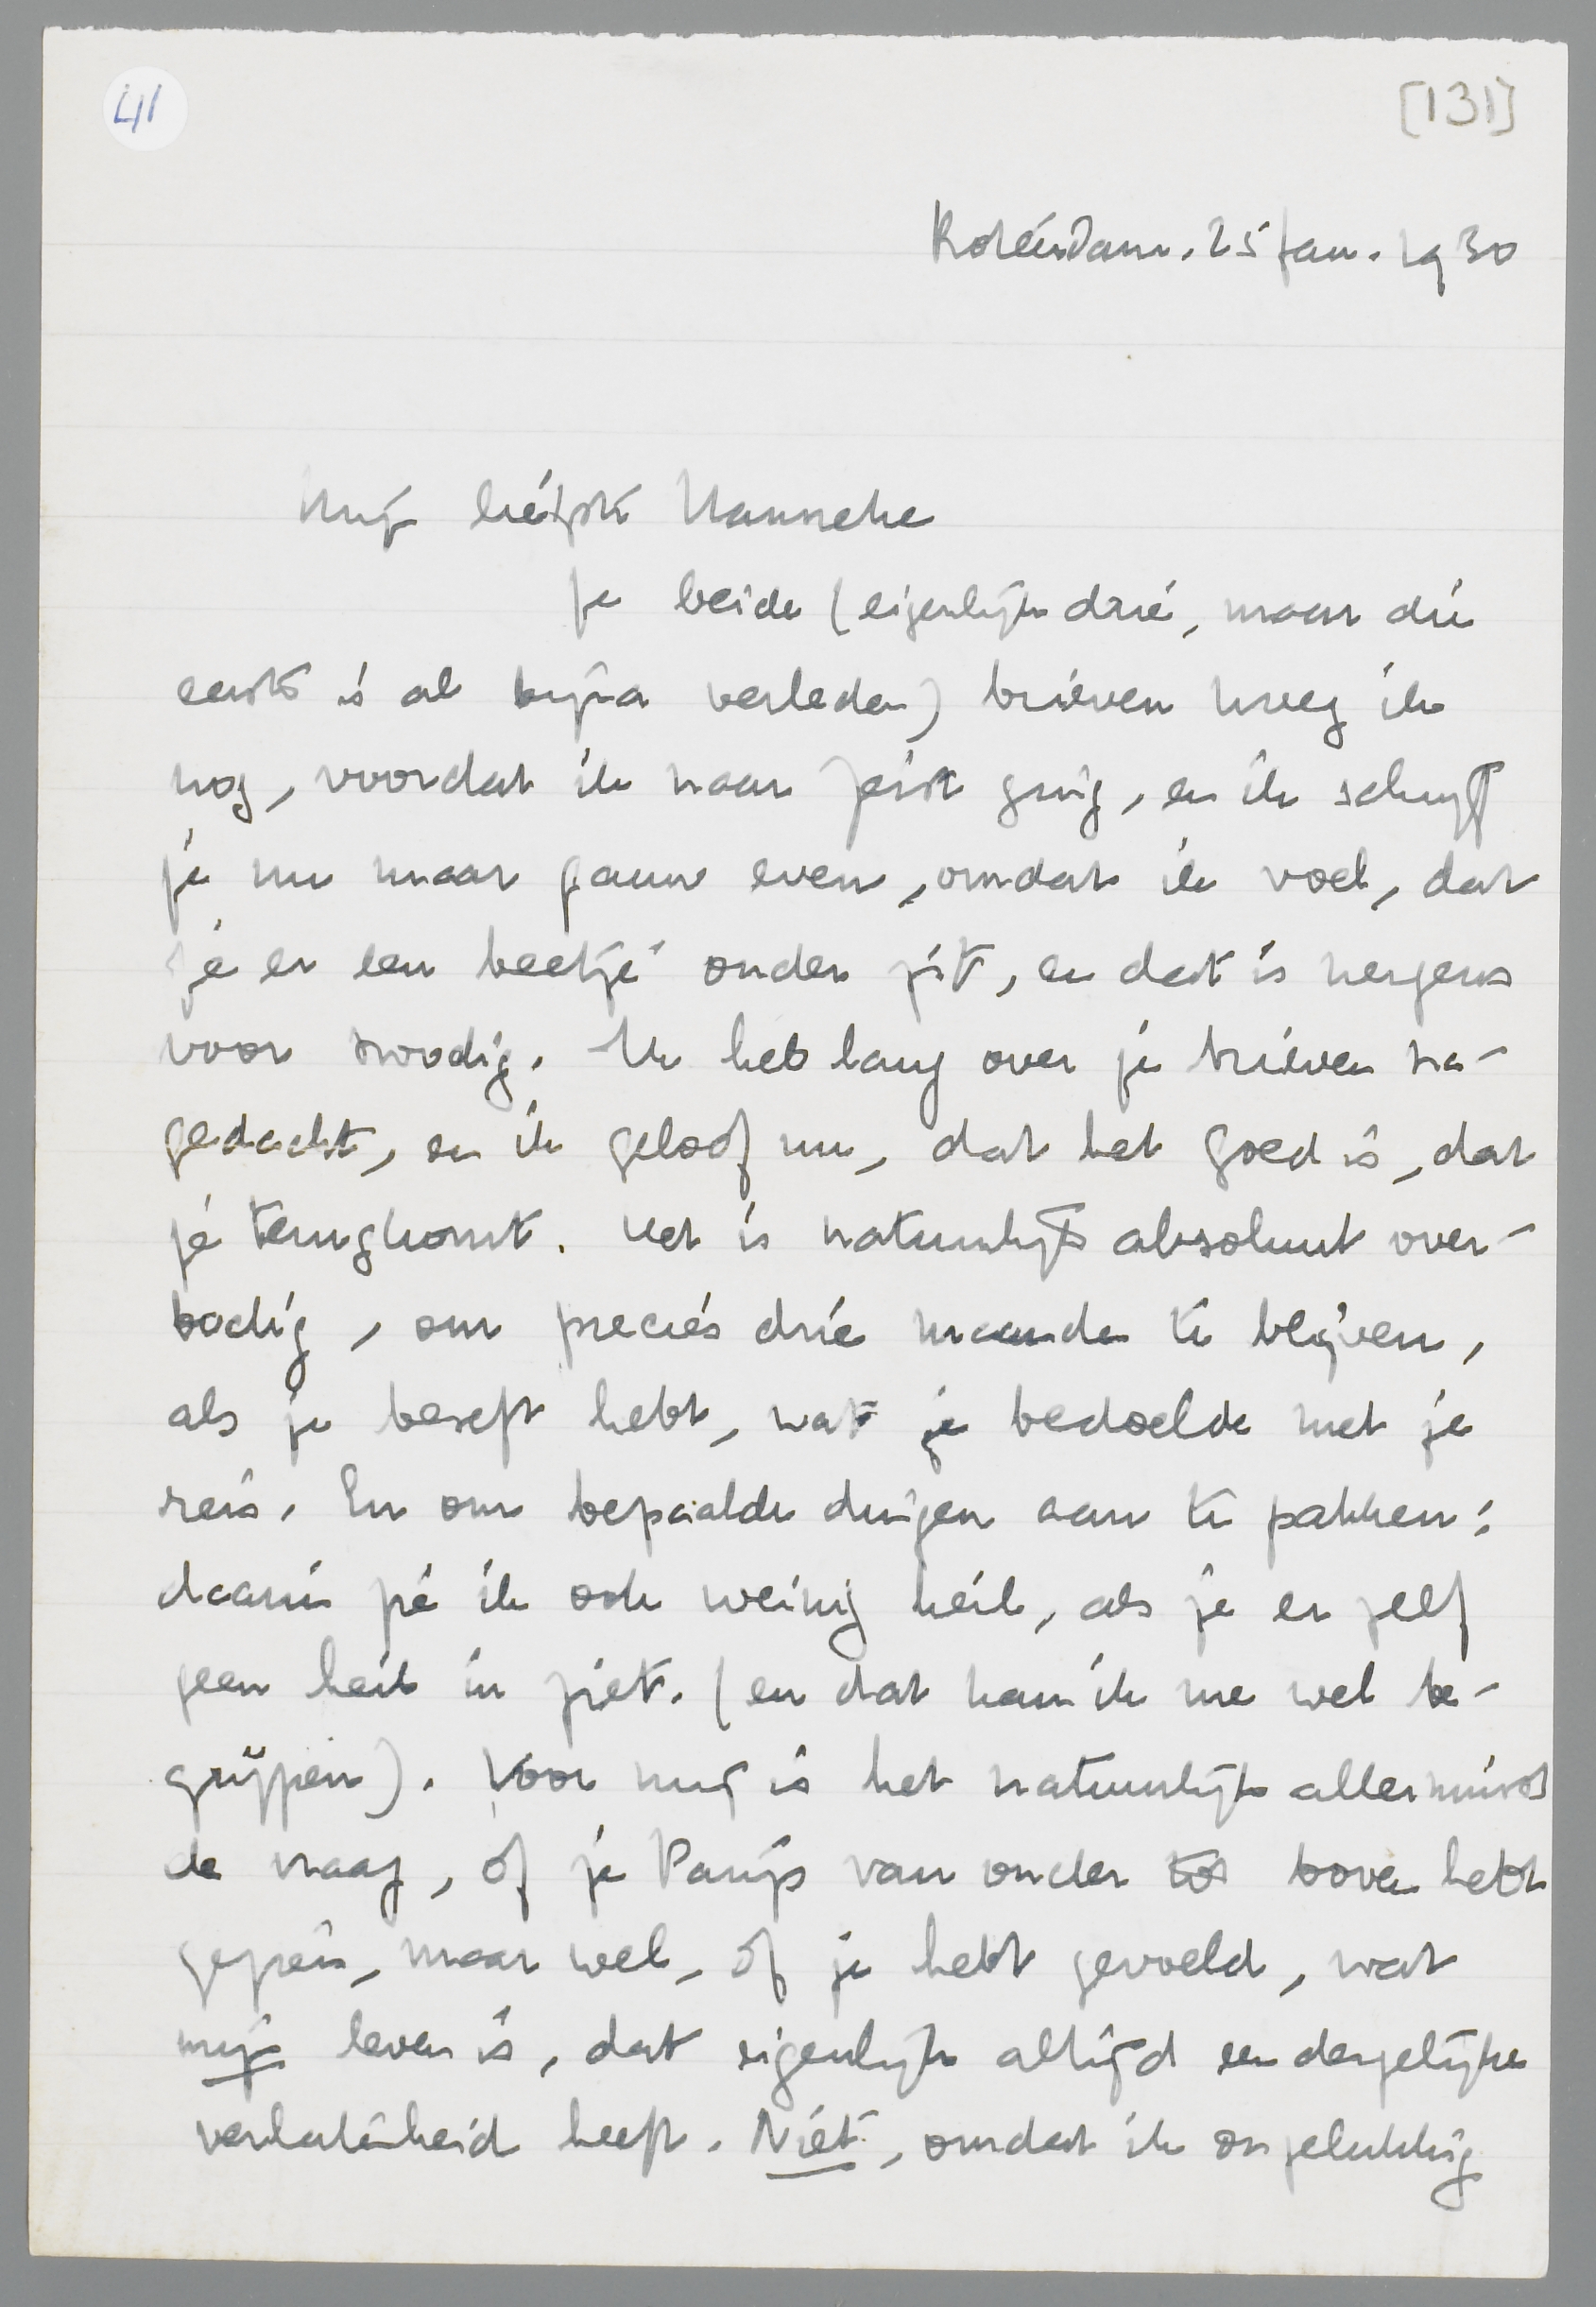 41
[131]
Rotterdam. 25 Jan. 1930
Mijn liefste Hanneke
Je beide (eigenlijk drie, maar die
eerste is al bijna verleden) brieven kreeg ik
nog, voordat ik naar Zeist ging, en ik schrijf
je nu maar gauw even, omdat ik voel, dat
je er een beetje onder zit, en dat is nergens
voor noodig. Ik heb lang over je brieven na-
gedacht, en ik geloof nu, dat het goed is, dat
je terugkomt. Het is natuurlijk absoluut over-
bodig, om precies drie maanden te blijven,
als je beseft hebt, wat je bedoelde met je
reis. En om bepaalde dingen aan te pakken:
daarin zie ik ook weinig heil, als je er zelf
geen heil in ziet. (en dat kan ik me wel be-
grijpen). Voor mij is het natuurlijk allerminst
de vraag, òf je Parijs van onder tot boven hebt
gezien, maar wel, òf je hebt gevoeld, wat
mijn leven is, dat eigenlijk altijd een dergelijke
verlatenheid heeft. Niet, omdat ik ongelukkig